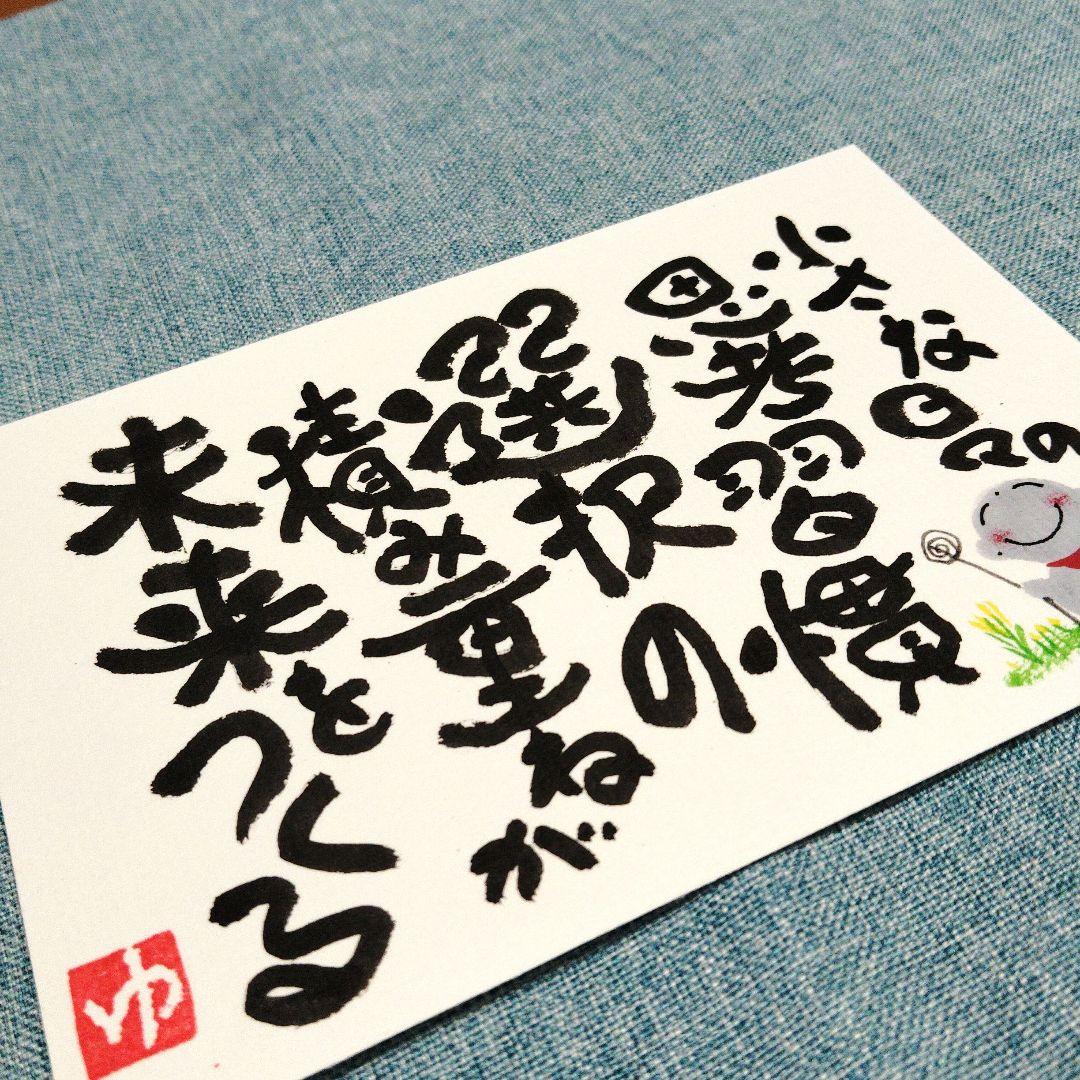 小さな日々の
思考習慣
選択の
積み重ねが
未来をつくる
ゆ